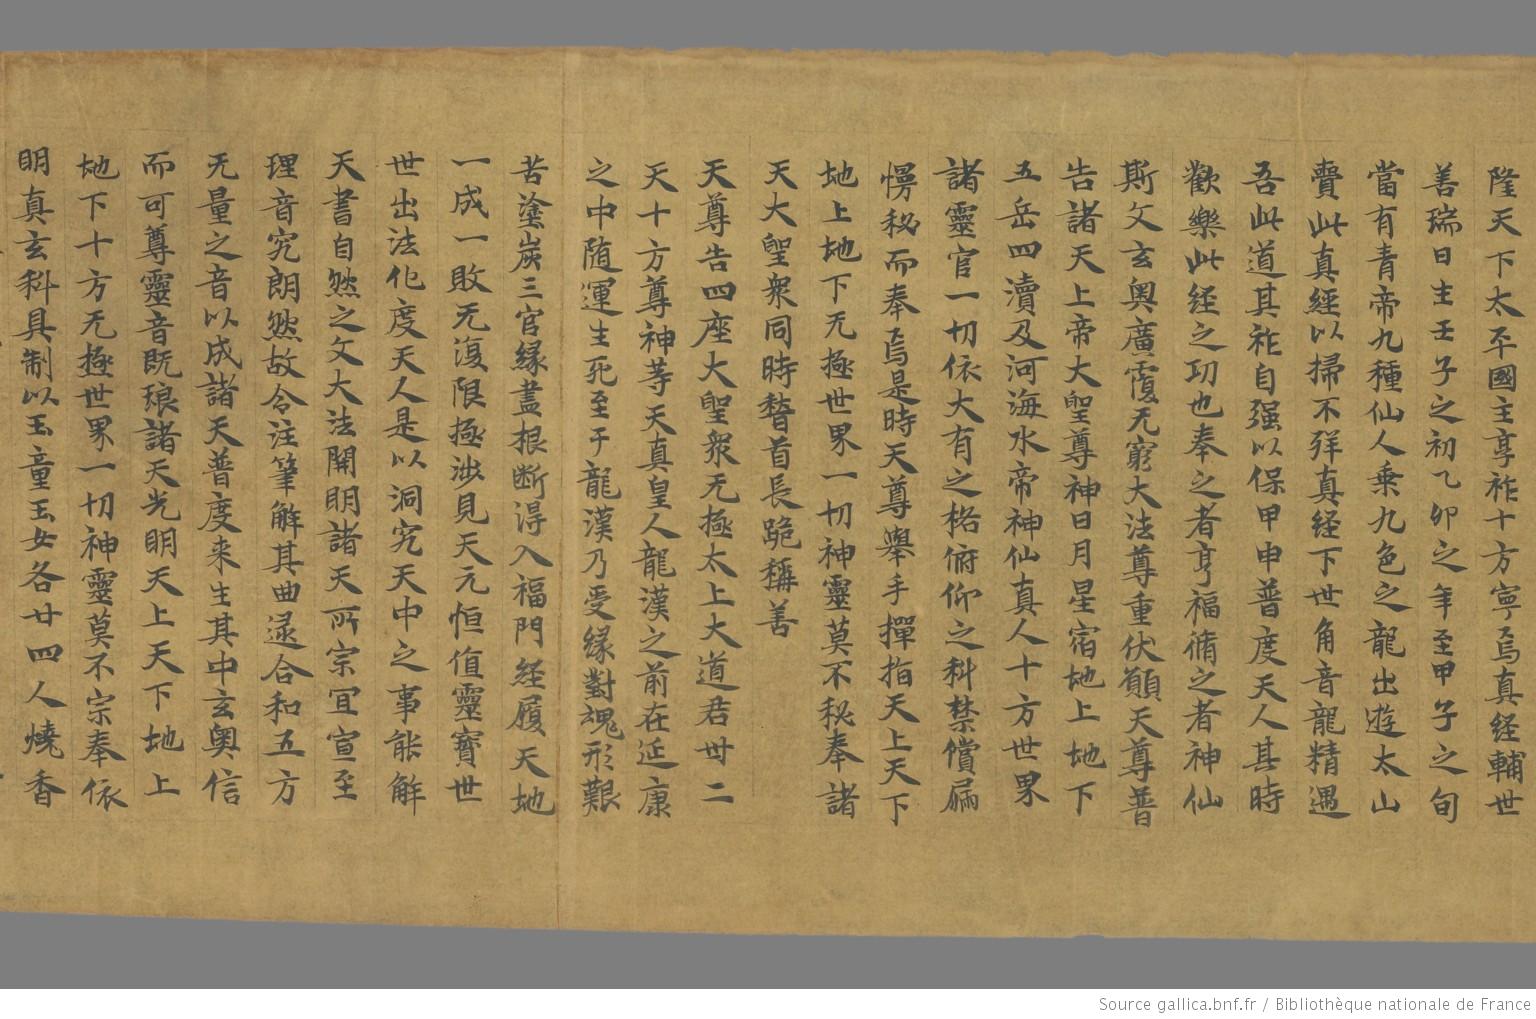 隆天下太平國主享祚十方寧焉真経輔世
善瑞日生壬子之初乙卯之年至甲子之旬
當有青帝九種仙人乗九色之龍出遊太山
賷此真經以掃不祥真経下世角音龍精遇
吾此道其祚自强以保甲申普度天人其時
歡樂此経之功也奉之者享福脩之者神仙
斯文玄奥廣覆无窮大法尊重伏願天尊普
告諸天上帝大聖尊神日月星宿地上地下
五岳四瀆及河海水帝神仙真人十方世界
諸靈官一切依大有之格俯仰之科禁償
慢秘而奉焉是時天尊舉手撣指天上天下
地上地下无極世界一切神靈莫不秘奉諸
天大聖衆同時嵇首長跪稱善
天尊告四座大聖衆无極太上大道君丗二
天十方尊神䓁天真皇人龍漢之前在延康
之中随運生死至于龍漢乃受縁對魂形艱
苦塗炭三官縁盡根断得入福門経履天地
一成一敗无復限極洂見天元恒值靈寳世
世出法化度天人是以洞究天中之事能解
天書自然之文大法開明諸天所宗冝宣至
理音究朗然故令注筆解其曲逯合和五方
无量之音以成諸天普度来生其中玄奥信
而可尊靈音既琅諸天光明天上天下地上
地下十方无極世界一切神靈莫不宗奉依
明真玄科具制以玉童玉女各廿四人燒香